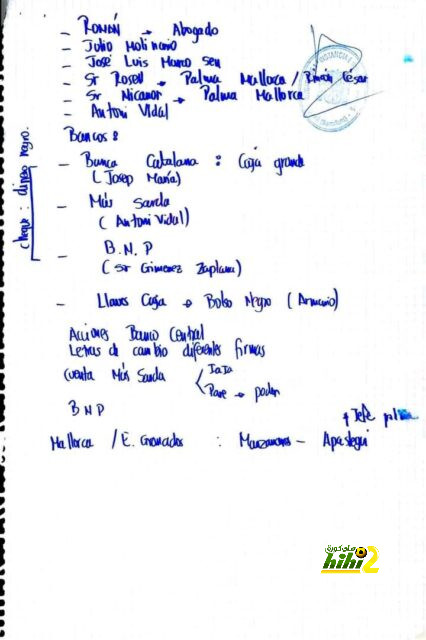 - ROMÁN → Abogado
- Julio Molinario
- José Luis Marco Seu
- Sr Rosell → Palma Mallorca / Román César
- Sr Nicanor → Palma Mallorca
- Antoni Vidal
Bancos:
- Banca Catalana : Caja grande
(Josep María)
- Más Sarda
(Antoni Vidal)
- B.N.P
(Sr Gimenez Zaplana)
- Llaves Caja → Bolso Negro (Armario)
Acciones Banco Central
Letras de cambio diferentes firmas
Cuenta Más Sarda
Pare → poder
BNP
+ Jefe
Mallorca / E. Granados : Manzanares - Apastegui
cheque: dinero negro.
هاي كورة
hihi2